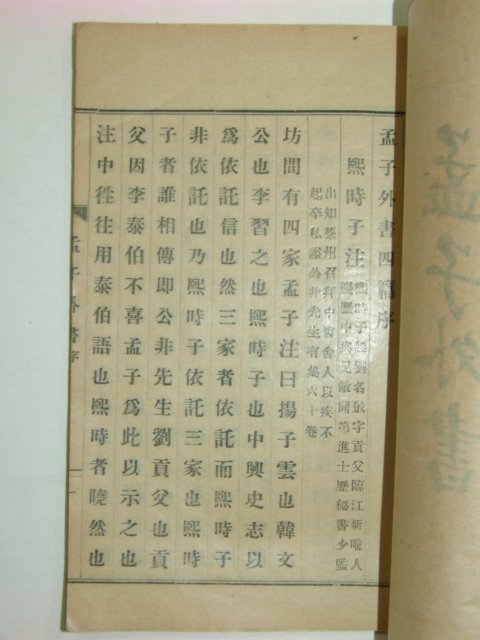 孟子外書四篇序
熙時子注
熙時子姓劉名攽字貢父臨江新喻人
慶歷中與兄敞同第進士歷秘書少監
出知蔡州召拜中書舍人以疾不
起卒私謚公非先生有集六十卷
坊間有四家孟子注曰揚子雲也韓文
公也李習之也熙時子也中興史志以
為依託信也然三家者依託而熙時子
非依託也乃熙時子依託三家也熙時
子者誰相傳即公非先生劉貢父也貢
父因李泰伯不喜孟子為此以示之也
注中徃往用泰伯語也熙時者曉然也
孟子外書序
一
孟子外書